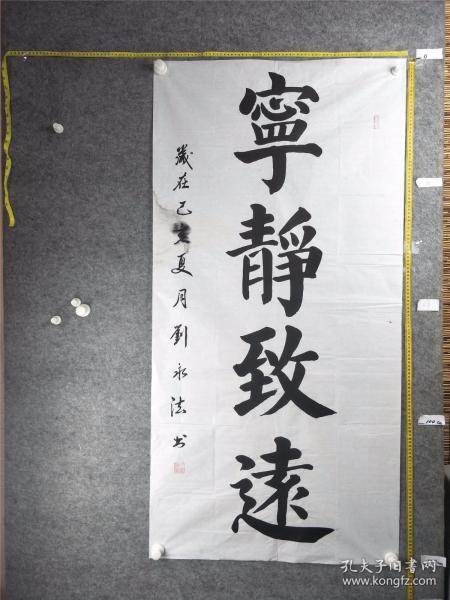 寧靜致遠
歲在己亥夏月劉永法书
0
100
孔夫子旧书网
www.kongfz.com